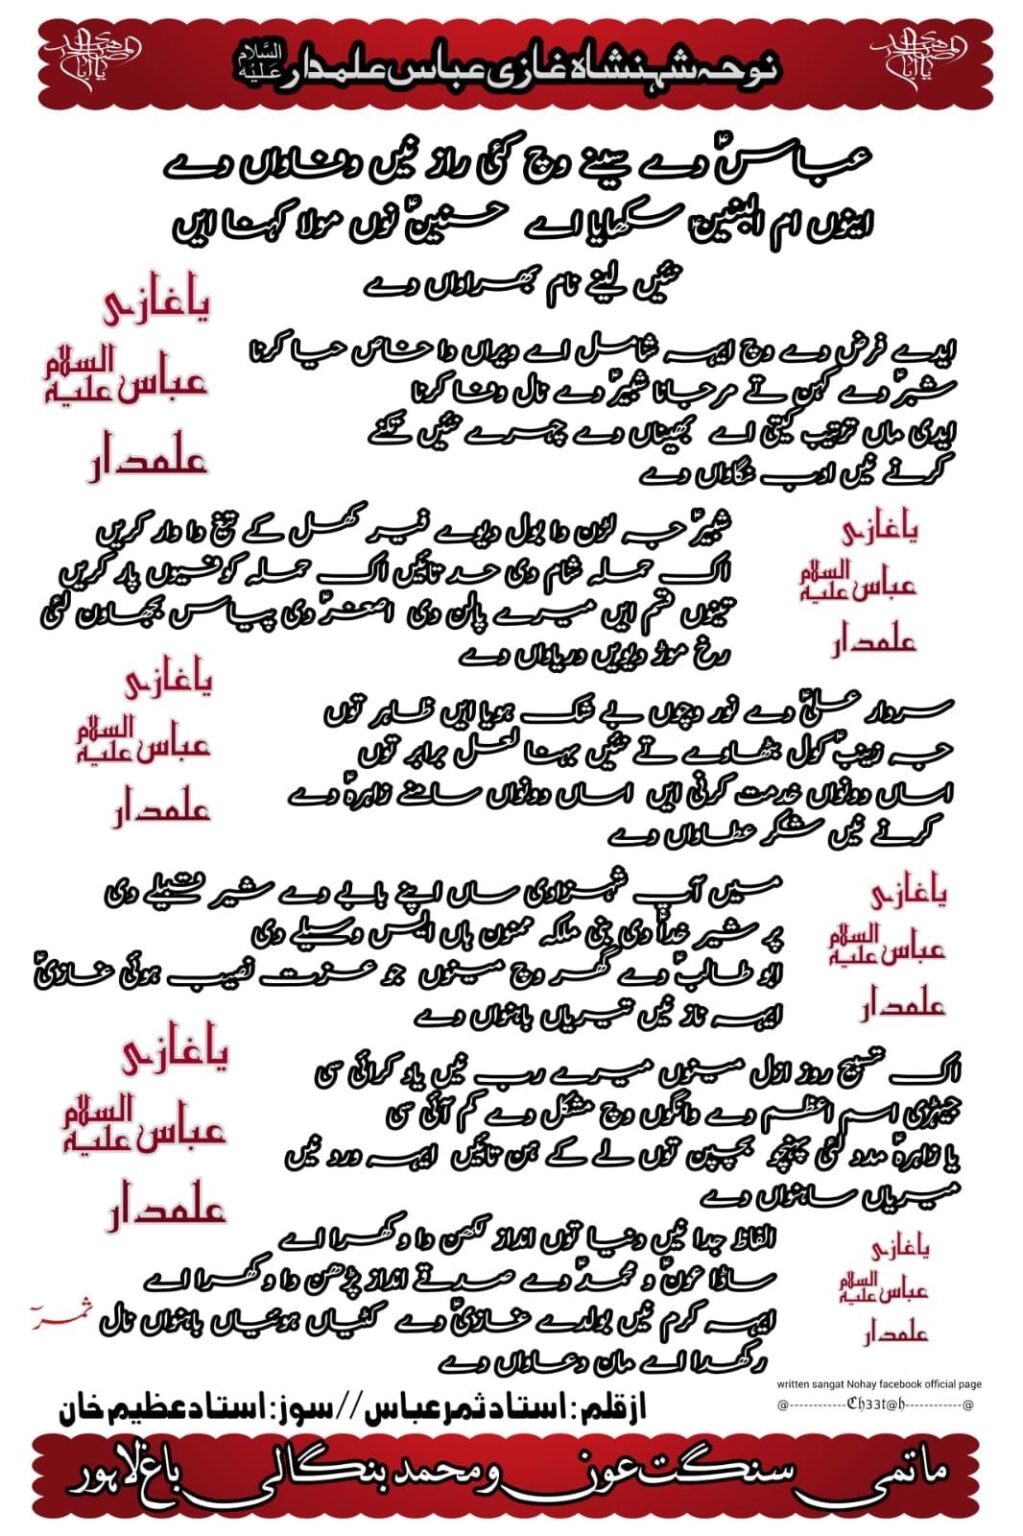 نوحہ شہنشاہ غازی عباس علمدار عَلَيْهِ السَّلَام
عباسؑ دے سینے وچ کئی راز نیں وفاواں دے
اینوں ام البنینؑ سکھایا اے حسنینؑ نوں مولا کہنا ایں
نئیں لینے نام بھراواں دے
یاغازی
عباس علیہ السلام
علمدار
ایدے فرض دے وچ ایہہ شامل اے ویراں دا خاص حیا کرنا
شبرؑ دے کہن تے مرجانا شبیرؑ دے نال وفا کرنا
ایدی ماں ترتیب کیتی اے بھیناں دے چہرے نئیں تکنے
کرنے نیں ادب نگاواں دے
شبیرؑ جہ لڑن دا بول دیوے فیر کھل کے تیغ دا وار کریں
اک حملہ شام دی حد تائیں اک حملہ کوفیوں پار کریں
تینوں قسم ایں میرے پالن دی اصغرؑ دی پیاس بجھاون لئی
رخ موڑ دیویں دریاواں دے
یاغازی
عباس علیہ السلام
علمدار
یاغازی
عباس علیہ السلام
علمدار
سردار علیؑ دے نور وچوں بے شک ہویا ایں ظاہر توں
جہ زینبؑ کول بٹھاوے تے نئیں بہنا لعل برابر توں
اساں دونواں خدمت کرنی ایں اساں دونواں سامنے زاہرہؑ دے
کرنے نیں شکر عطاواں دے
میں آپ شہزادی ساں اپنے بابے دے شیر قبیلے دی
پر شیر خداؑ دی بنی ملکہ ممنون ہاں ایس وسیلے دی
ابو طالبؑ دے گھر وچ مینوں جو عزت نصیب ہوئی غازیؑ
ایہہ ناز نیں تیریاں باہنواں دے
یاغازی
عباس علیہ السلام
علمدار
یاغازی
عباس علیہ السلام
علمدار
اک تسبیح روز ازل مینوں میرے رب نیں یاد کرائی سی
جیہڑی اسم اعظم دے وانگوں وچ مشکل دے کم آئی سی
یا زاہرہؑ مدد لئی پہنچو بچپن توں لے کے ہن تائیں ایہہ ورد نیں
میریاں ساہنواں دے
الفاظ جدا نیں دنیا توں انداز لکھن دا وکھرا اے
ساڈا عونؑ و محمدؑ دے صدقے انداز پڑھن دا وکھرا اے
ایہہ کرم نیں بولدے غازیؑ دے کٹیاں ہوئیاں باہنواں نال ثمرؔ
رکھدا اے مان دعاواں دے
یاغازی
عباس علیہ السلام
علمدار
written sangat Nohay facebook official page
@-----------ℭ𝔥33𝔱@𝔥-----------@
ازقلم: استاد ثمر عباس // سوز: استاد عظیم خان
ماتمی سنگت عون و محمد بنگالی باغ لاہور